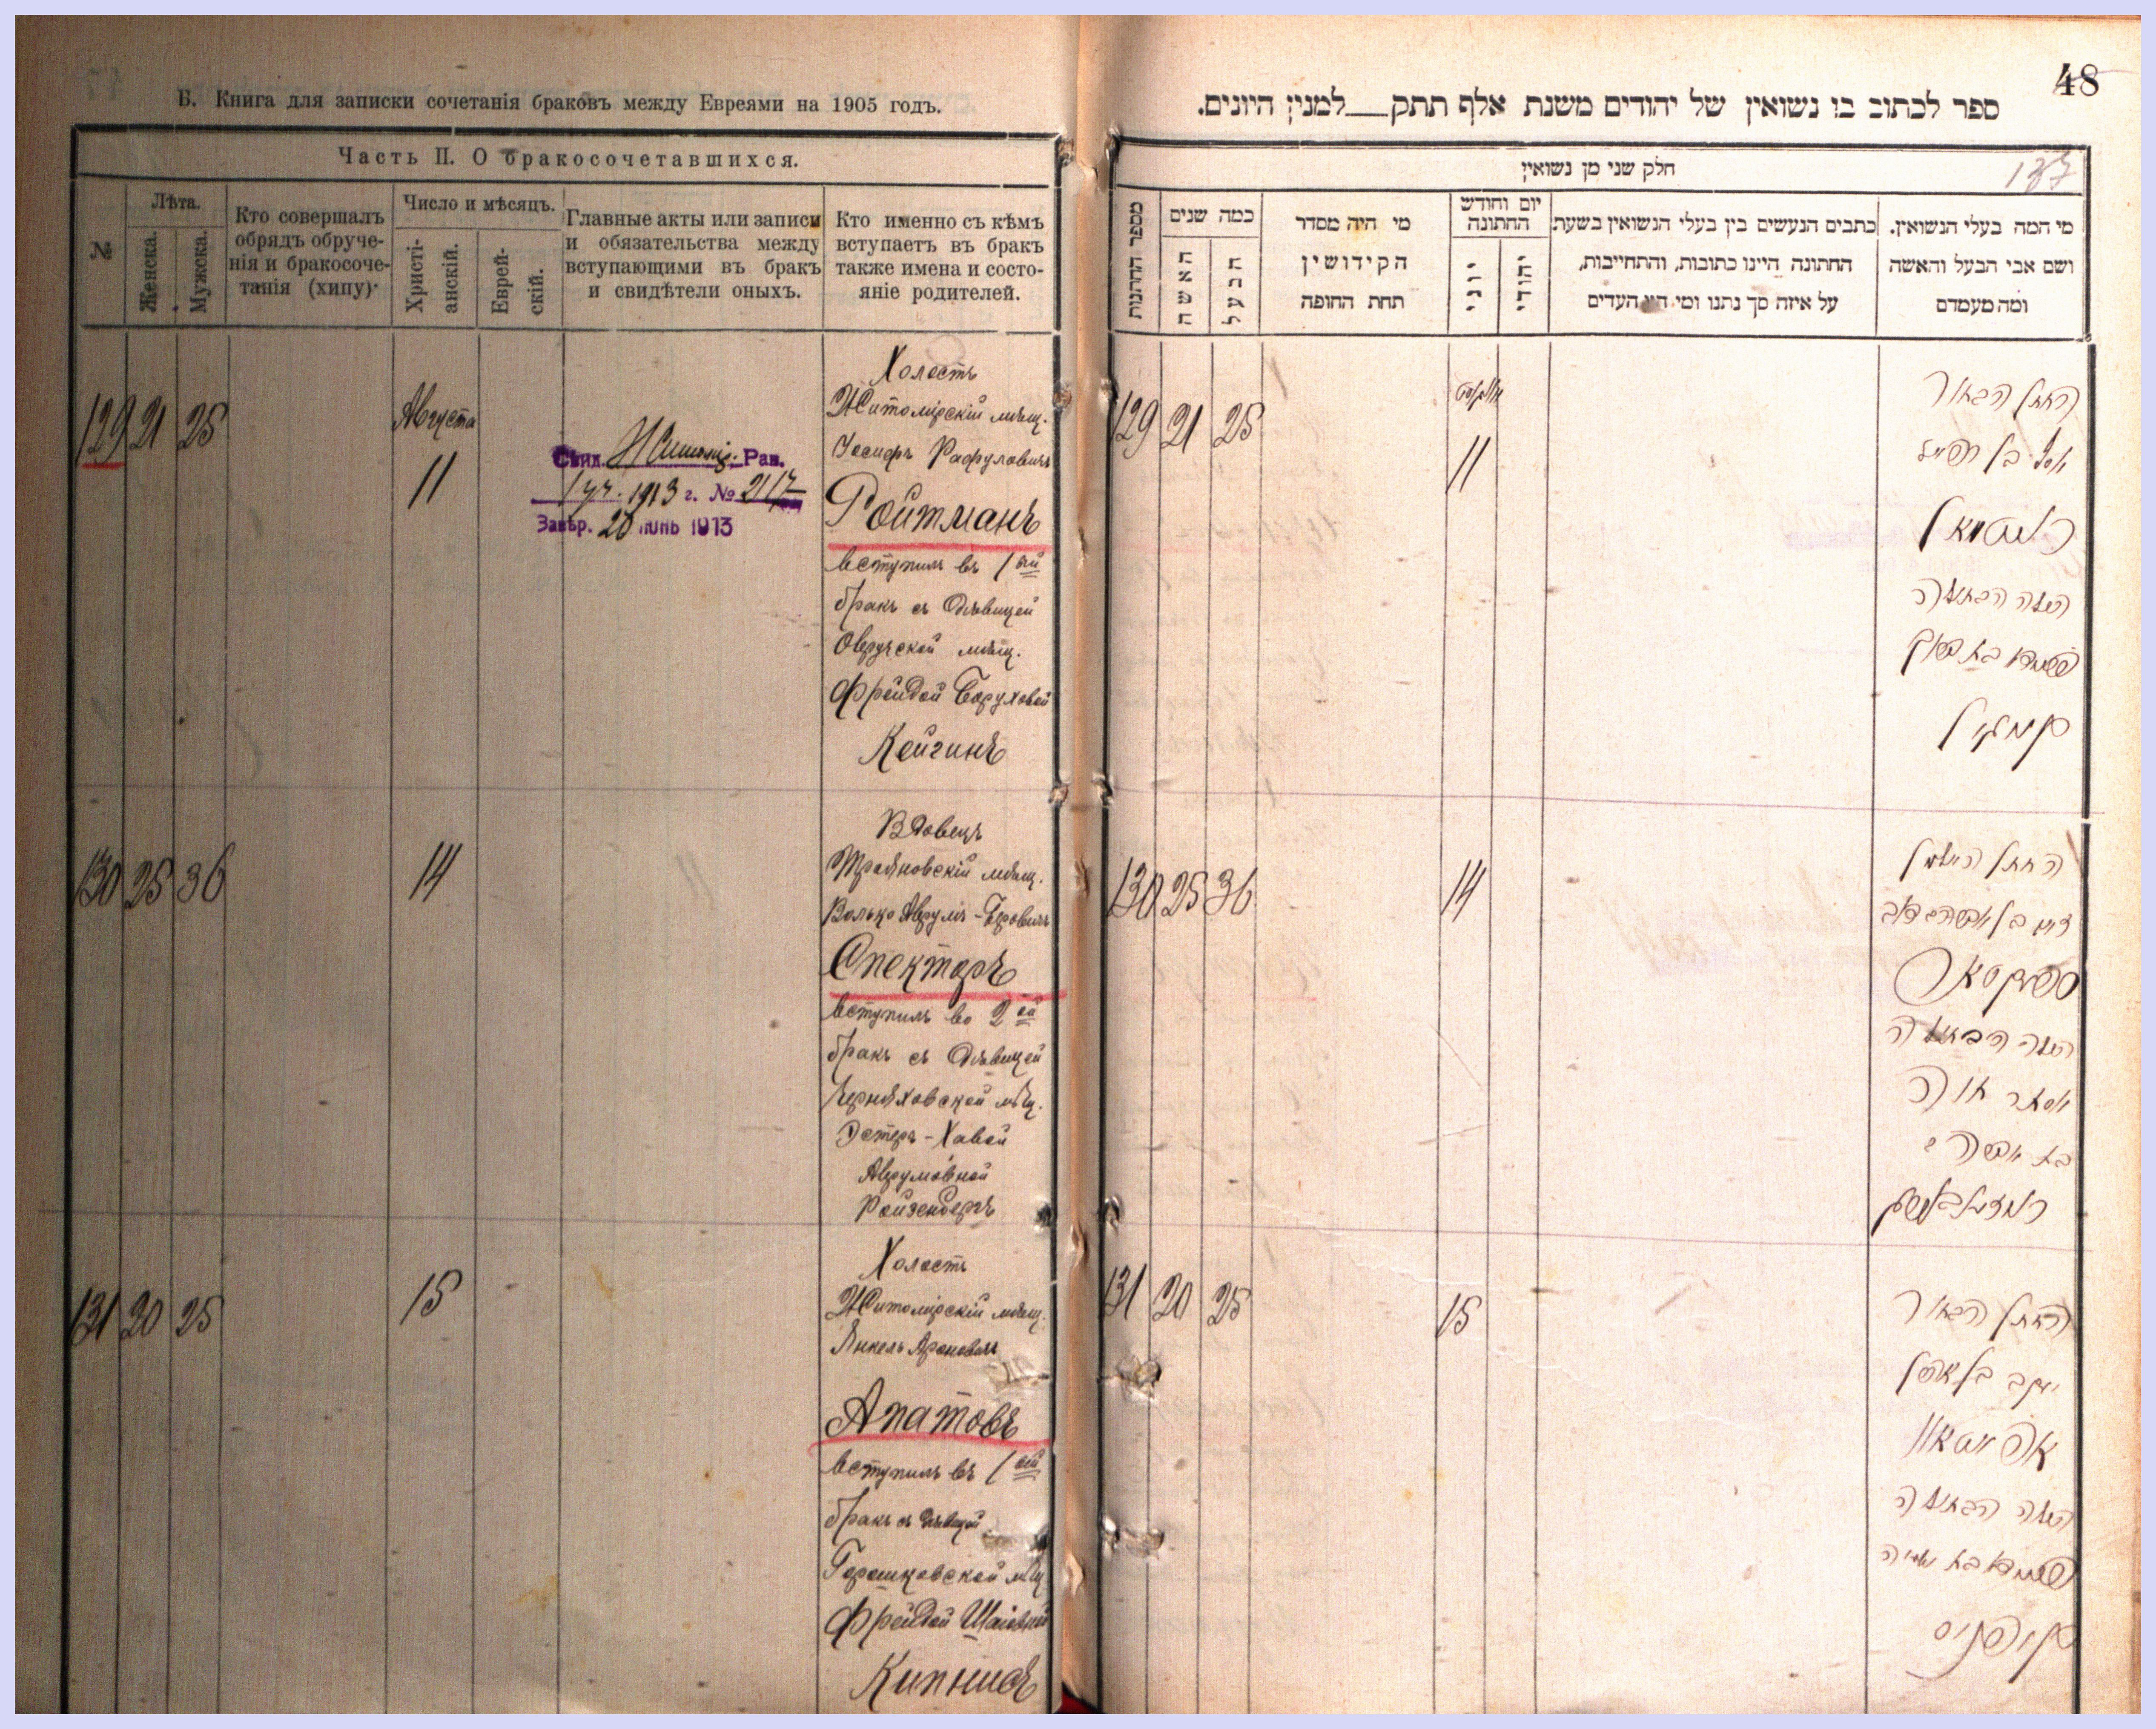 Б. Книга для записки сочетанія браковъ между Евреями на 1905 годъ.
Часть II. О бракосочетавшихся.
№
Лѣта.
Женска.
Мужска.
Кто совершалъ
обрядъ обруче-
нія и бракосоче-
танія (хипу)
Число и мѣсяцъ.
Христі-
анскій.
Еврей-
скій.
Главные акты или записи
и обязательства между
вступающими въ бракъ
и свидѣтели оныхъ.
Кто именно съ кѣмъ
вступаетъ въ бракъ
также имена и состо-
яніе родителей.
129 21 25
Августа
11
Свид. Житомір. Рав.
1913 г. № 2117
Завѣр. 20 іюнь 1913
Холостъ
Житомірскій мѣщ.
Іосифъ Рафуловичъ
Ройтманъ
вступилъ въ 1ый
бракъ съ дѣвицей
Овручской мѣщ.
Фрейдой Боруховой
Кейгинъ
130 25 36
14
Вдовецъ
Трояновскій мѣщ.
Волько Аврумъ-Беровичъ
Спекторъ
вступилъ во 2ой
бракъ съ дѣвицей
Черняховской мѣщ.
Эстеръ-Хавой
Аврумовной
Ройзенбергъ
131 20 25
15
Холостъ
Житомірскій мѣщ.
Янкель Ароновичъ
Апатовъ
вступилъ въ 1ый
бракъ съ дѣвицей
Горошковской мѣщ
Фрейдой Шаіовной
Кипнисъ
48
ספר לכתוב בו נשואין של יהודים משנת אלף תתק למנין היונים.
חלק שני מן נשואין
137
מספר החתונות
כמה שנים
האשה
הבעל
מי היה מסדר
הקידושין
תחת החופה
יום וחודש
החתונה
יוני
יהודי
כתבים הנעשים בין בעלי הנשואין בשעת
החתונה היינו כתובות, והתחייבות,
על איזה סך נתנו ומי היו העדים
מי המה בעלי הנשואין.
ושם אבי הבעל והאשה
ומה מעמדם
129 21 25
אווגוסט
11
החתן הבחור
יוסף בן רפאל
רויטמאן
הכלה הבתולה
פריידא בת ברוך
קייגין
130 25 36
14
החתן האלמן
בן אברהם בער
ספעקטאר
הכלה הבתולה
אסתר חוה
בת אברהם
רויזענבערג
131 20 25
15
החתן הבחור
יעקב בן אהרן
אפאטאוו
הכלה הבתולה
פריידא בת ישעיה
קיפניס